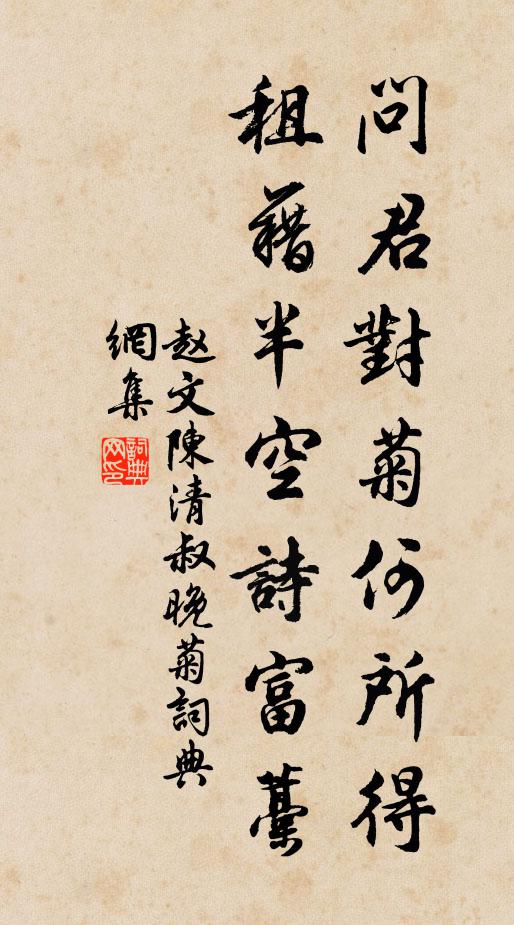 問君對菊何所得
租藉半空詩富藁
赵文陳清叔晚菊詞典
網集
詞典
网印